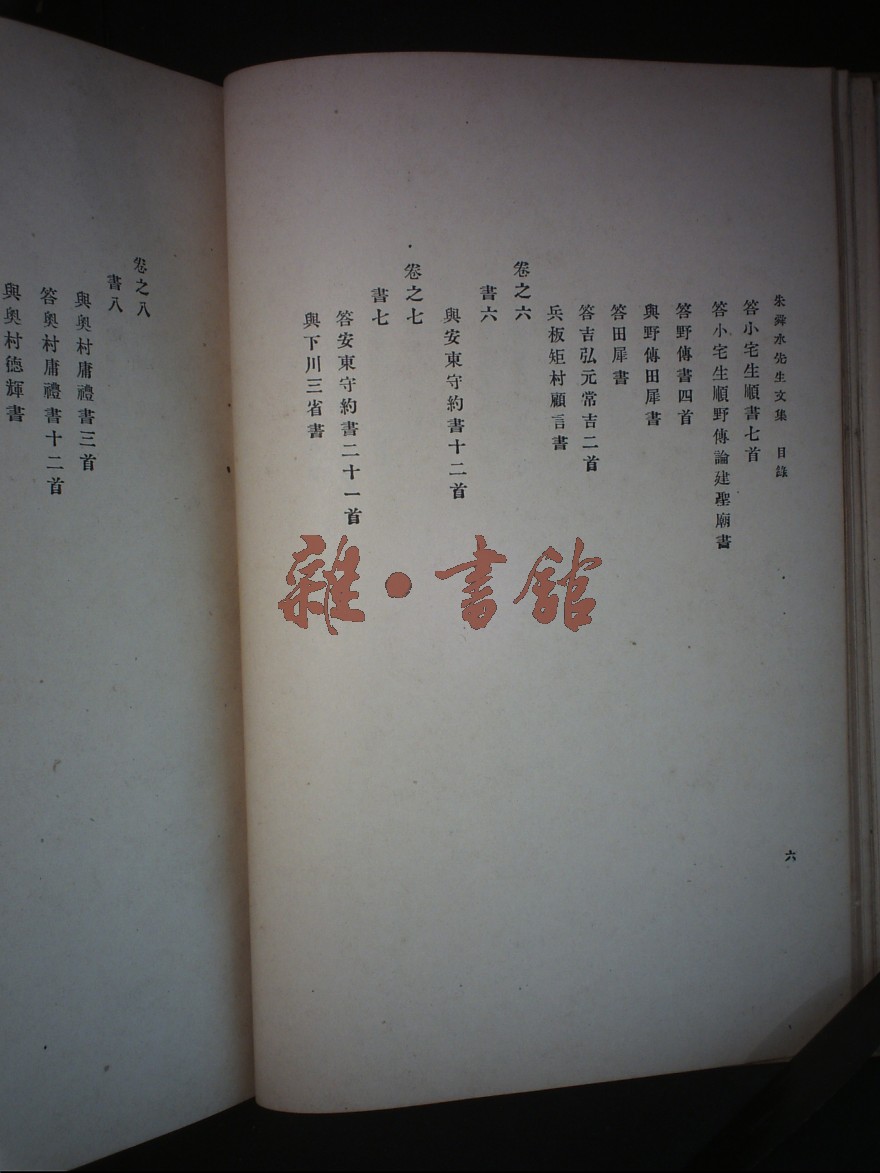 朱舜水先生文集 目錄
答小宅生順書七首
答小宅生順野傳論建聖廟書
答野傳書四首
與野傳田犀書
答田犀書
答吉弘元常吉二首
兵板矩村顧言書
卷之六
書六
與安東守約書十二首
卷之七
書七
答安東守約書二十一首
與下川三省書
六
卷之八
書八
與奧村庸禮書三首
答奧村庸禮書十二首
與奧村德輝書
雜·書館